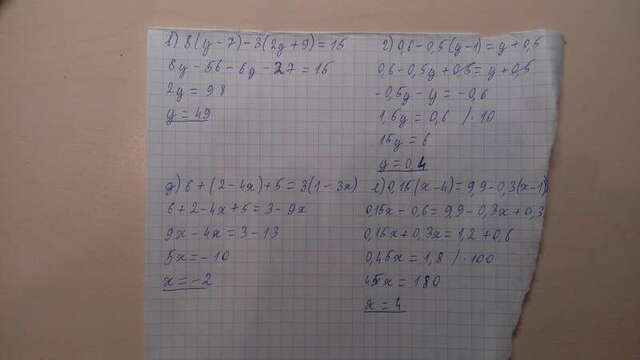 в) 8(y-7)-3(2y+9)=15
8y-56-6y-27=15
2y=98
y=49
г) 0,6-0,5(y-1)=y+0,5
0,6-0,5y+0,5=y+0,5
-0,5y-y=-0,6
1,5y=0,6 /·10
15y=6
y=0,4
д) 6+(2-4x)+5=3(1-3x)
6+2-4x+5=3-9x
9x-4x=3-13
5x=-10
x=-2
е) 0,15(x-4)=9,9-0,3(x-1)
0,15x-0,6=9,9-0,3x+0,3
0,15x+0,3x=1,2+0,6
0,45x=1,8 /·100
45x=180
x=4